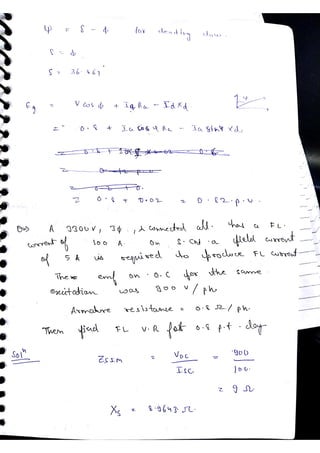 ψ = δ - ϕ for leading case.
δ = ϕ
δ = 36.869°
Eg = V cos ϕ + Iq Ra - Id Xd
= 0.8 + Ia cos ψ Ra - Ia sin ψ Xd
= 0.8 + 0.02 = 0.82 p.u.
Q5) A 3300 V, 3ϕ, λ connected alt. has a FL.
current of 100 A. On S.C. a field current
of 5 A is required to produce FL current
There emf on O.C for the same
excitation was 900 V/ph
Armature resistance = 0.8 Ω/ph.
Then find FL V.R for 0.8 p.f. lag
Solⁿ Zs = Voc / Isc = 900 / 100
= 9 Ω
Xs = 8.9643 Ω.